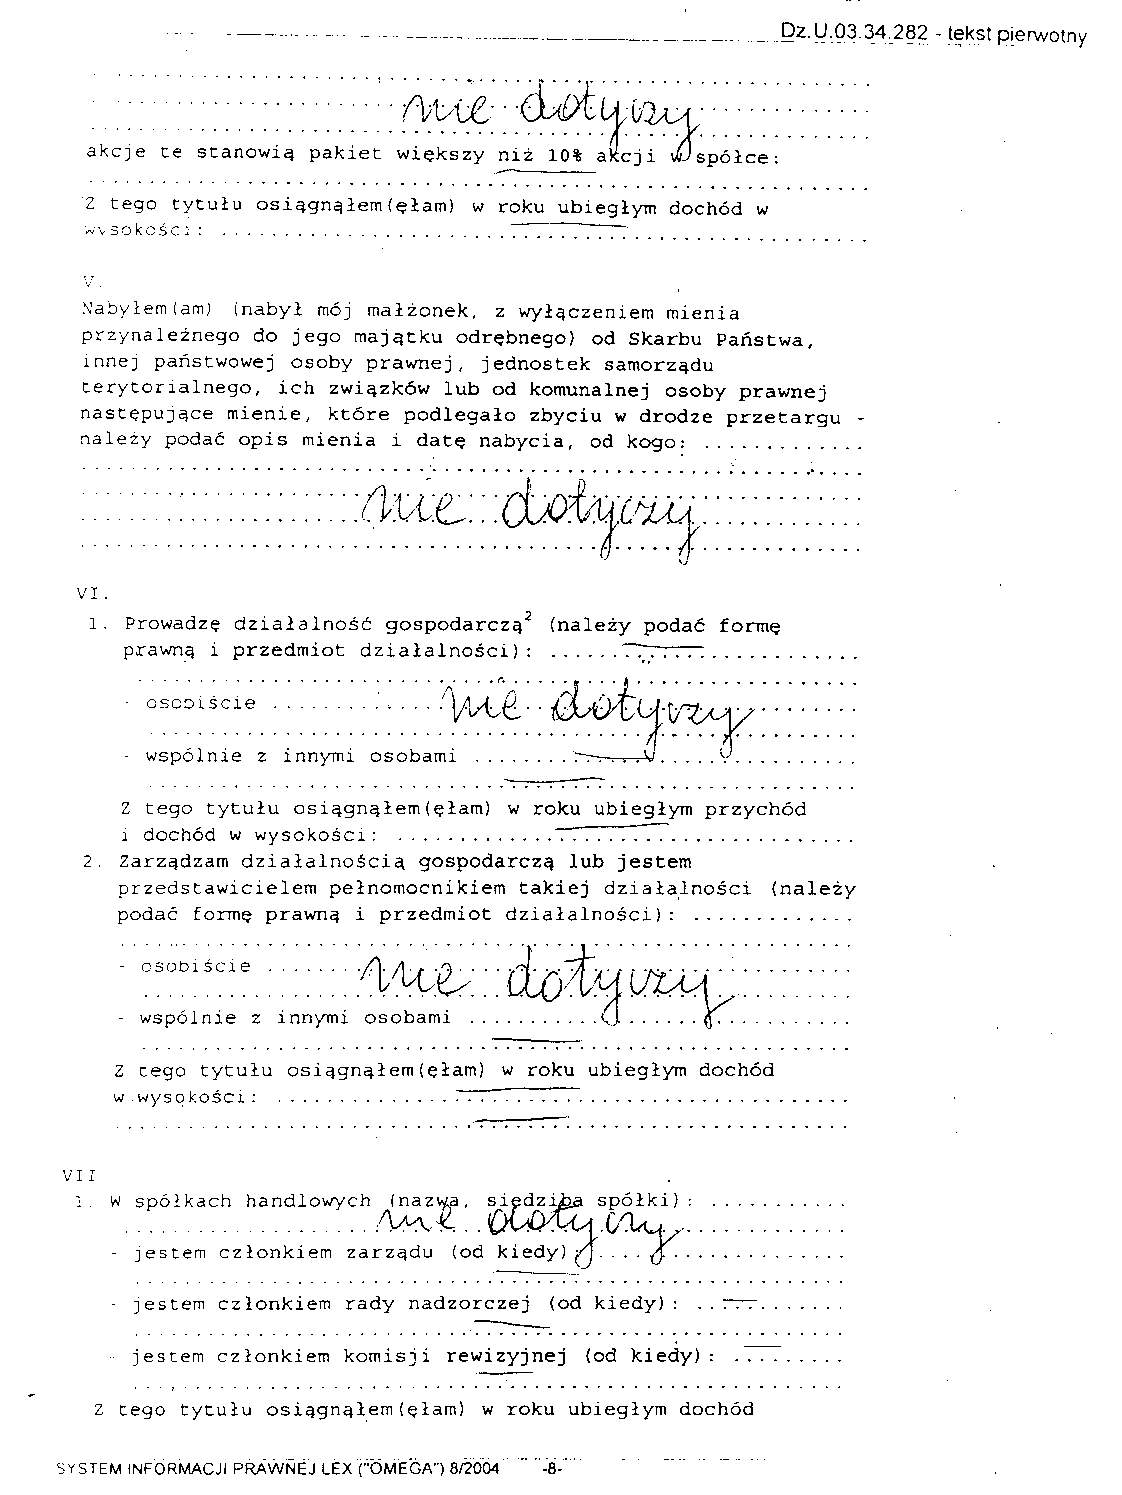 Dz.U.03.34.282 - tekst pierwotny
nie dotyczy
akcje te stanowią pakiet większy niż 10% akcji w spółce:
Z tego tytułu osiągnąłem(ęłam) w roku ubiegłym dochód w
wysokości: ....................................................
V.
Nabyłem(am) (nabył mój małżonek, z wyłączeniem mienia
przynależnego do jego majątku odrębnego) od Skarbu Państwa,
innej państwowej osoby prawnej, jednostek samorządu
terytorialnego, ich związków lub od komunalnej osoby prawnej
następujące mienie, które podlegało zbyciu w drodze przetargu -
należy podać opis mienia i datę nabycia, od kogo: .............
nie dotyczy
VI.
1. Prowadzę działalność gospodarczą² (należy podać formę
prawną i przedmiot działalności): .........................
- osobiście .............. nie dotyczy ........
- wspólnie z innymi osobami ...............................
Z tego tytułu osiągnąłem(ęłam) w roku ubiegłym przychód
i dochód w wysokości: .....................................
2. Zarządzam działalnością gospodarczą lub jestem
przedstawicielem pełnomocnikiem takiej działalności (należy
podać formę prawną i przedmiot działalności): .............
- osobiście ....... nie dotyczy ..........
- wspólnie z innymi osobami ...............................
Z tego tytułu osiągnąłem(ęłam) w roku ubiegłym dochód
w wysokości: ..............................................
VII
1. W spółkach handlowych (nazwa, siedziba spółki): ...........
nie dotyczy
- jestem członkiem zarządu (od kiedy) .....................
- jestem członkiem rady nadzorczej (od kiedy): ............
- jestem członkiem komisji rewizyjnej (od kiedy): .........
Z tego tytułu osiągnąłem(ęłam) w roku ubiegłym dochód
SYSTEM INFORMACJI PRAWNEJ LEX ("OMEGA") 8/2004 -8-